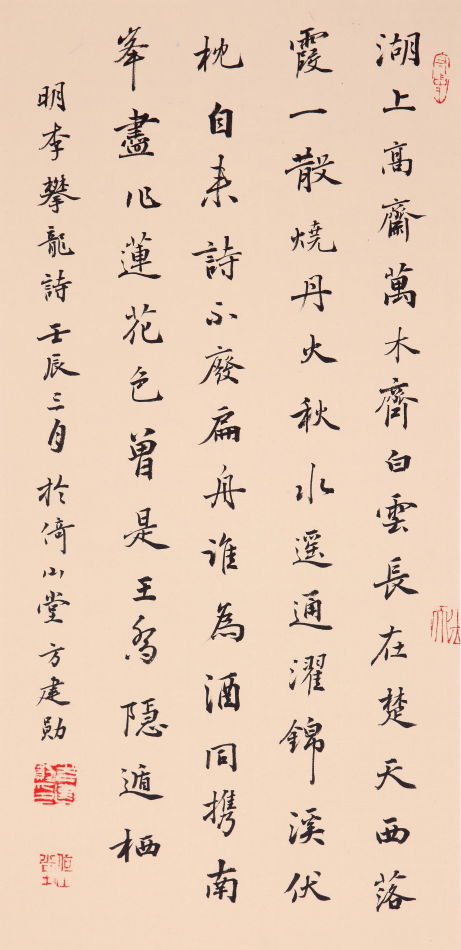 湖上高齋萬木齊白雲長在楚天西落
霞一散燒丹火秋水遥通濯錦溪伏
枕自来詩不廢扁舟誰為酒同携南
峯盡作蓮花色曾是王喬隱遁栖
明李攀龍詩壬辰三月於倚山堂方建勋